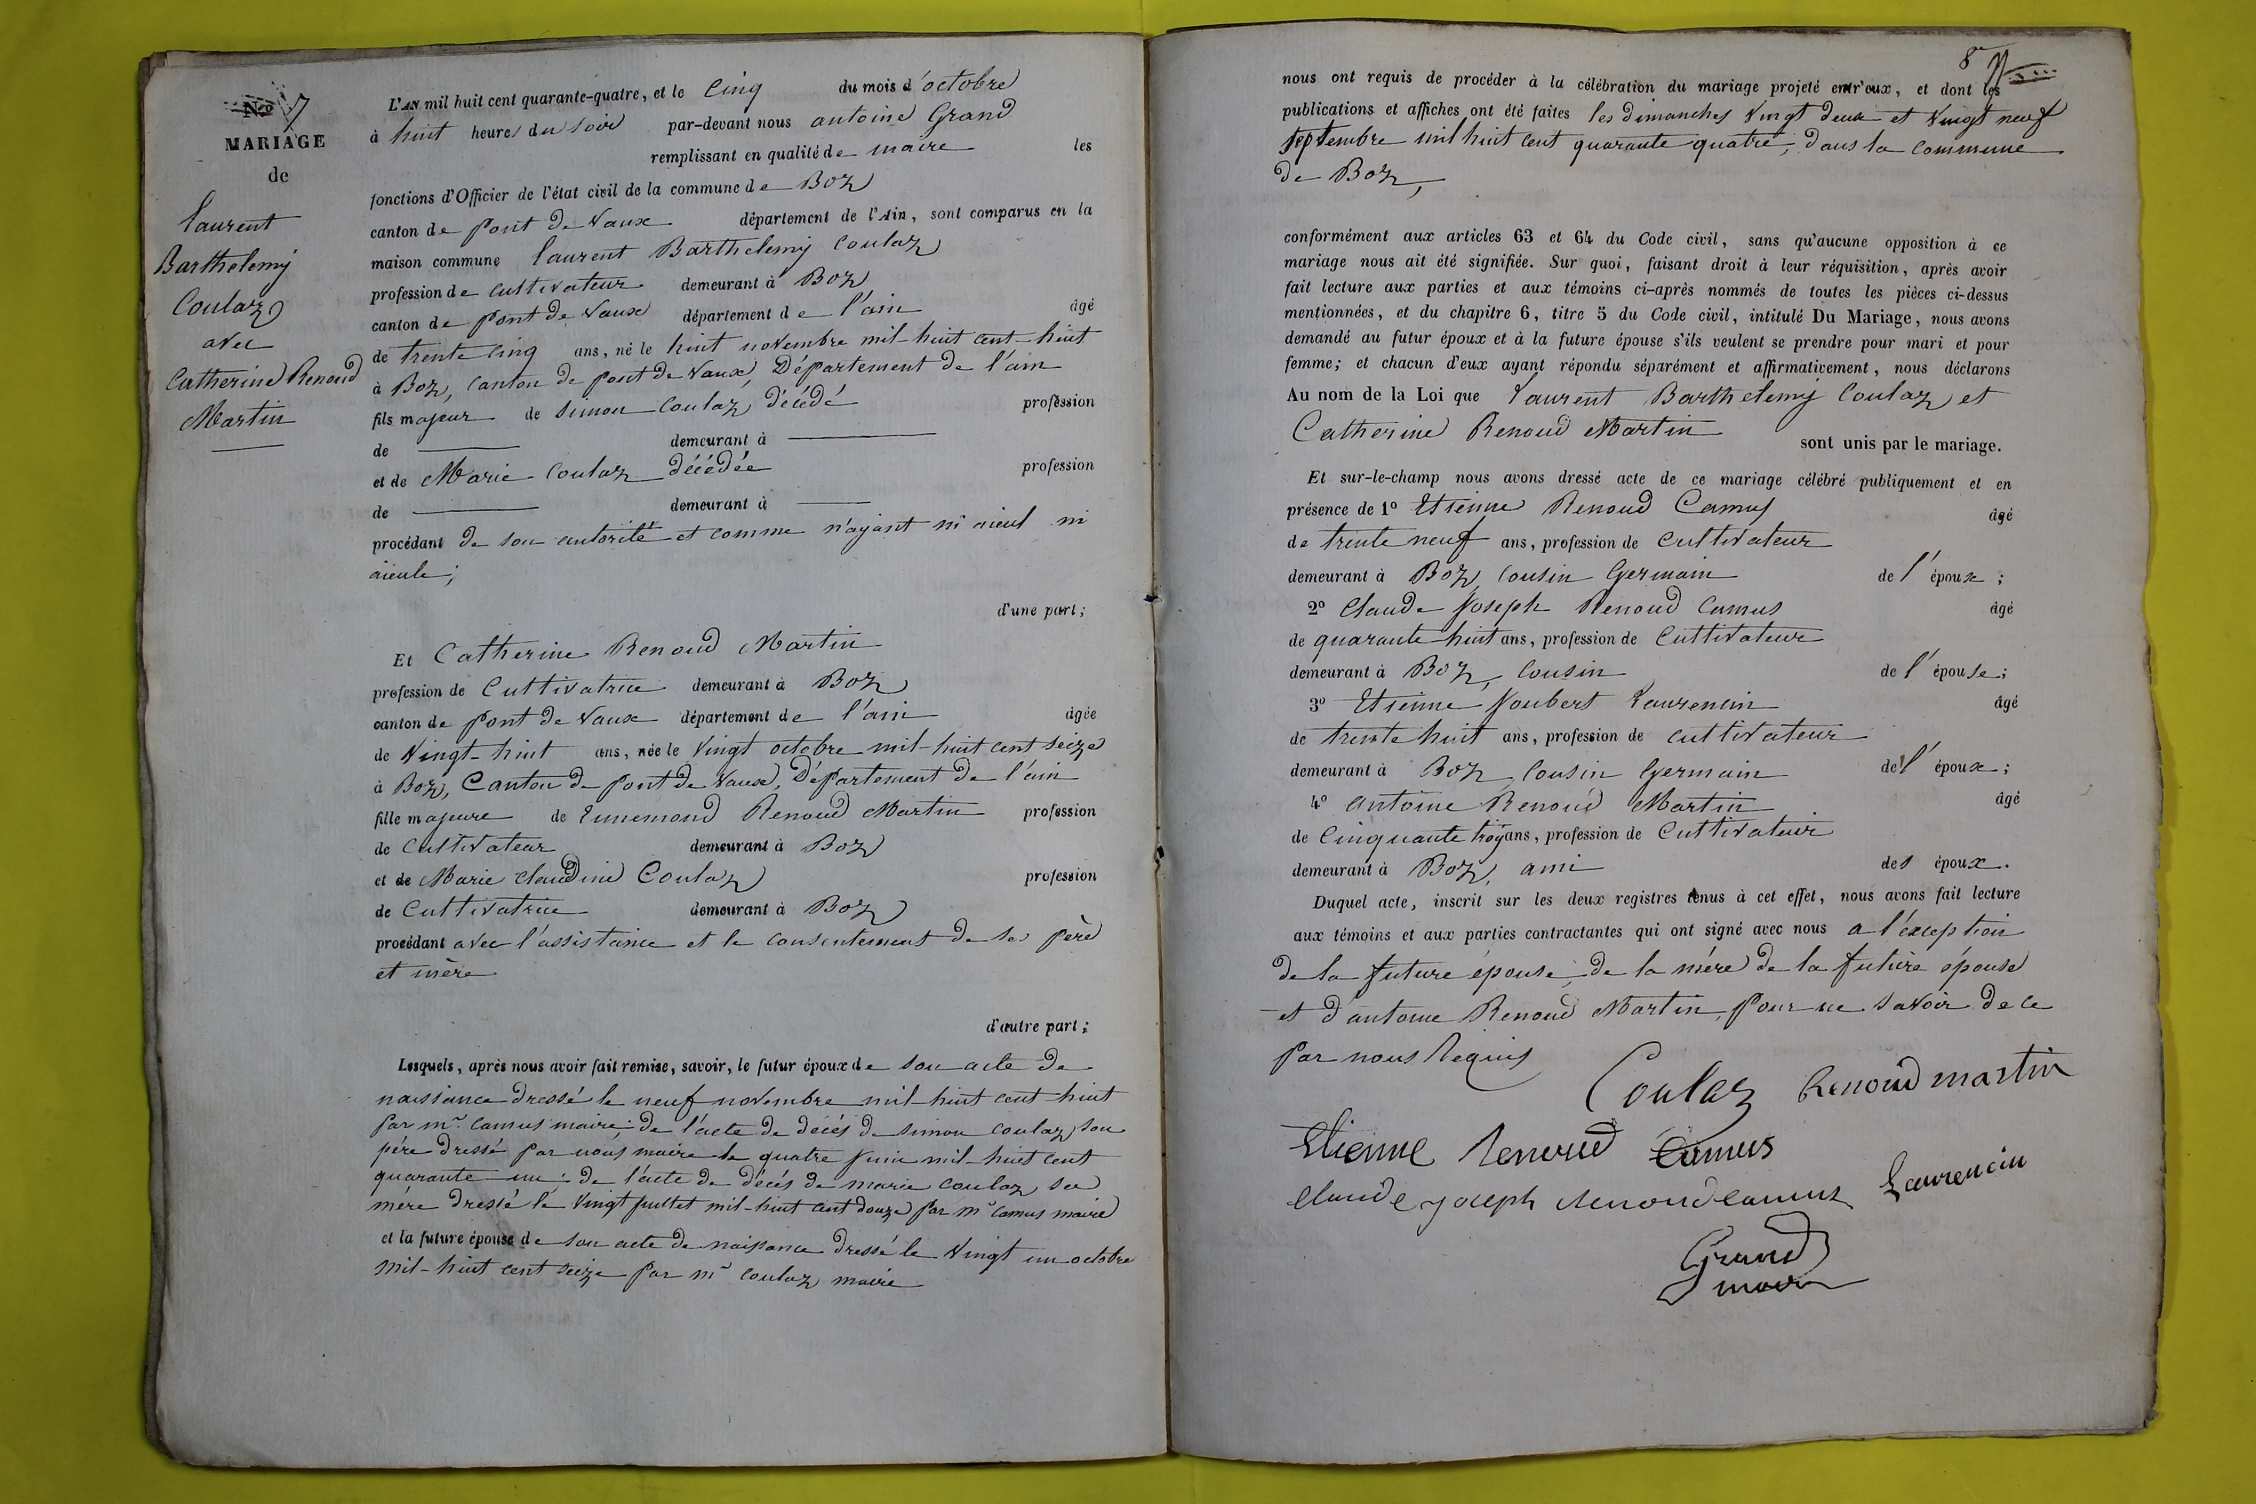 Nº 7
MARIAGE
de
Laurent
Barthelemy
Coulaz
avec
Catherine Renoud
Martin
L'AN mil huit cent quarante-quatre, et le Cinq du mois d'octobre
à huit heures du soir par-devant nous antoine Grand
remplissant en qualité de maire les
fonctions d'Officier de l'état civil de la commune de Boz
canton de pont de Vaux département de l'Ain, sont comparus en la
maison commune Laurent Barthelemy Coulaz
profession de cultivateur demeurant à Boz
canton de pont de Vaux département de l'ain âgé
de trente cinq ans, né le huit novembre mil-huit cent-huit
à Boz, canton de pont de Vaux, Département de l'ain
fils majeur de simon Coulaz, décédé profession
de demeurant à
et de Marie Coulaz décédée profession
de demeurant à
procédant de son autorité et comme n'ayant ni aieul ni
aieule;
d'une part;
Et Catherine Renoud Martin
profession de Cultivatrice demeurant à Boz
canton de pont de Vaux département de l'ain âgée
de Vingt-huit ans, née le Vingt octobre mil-huit cent seize
à Boz, Canton de pont de Vaux, Département de l'ain
fille majeure de Ennemond Renoud Martin profession
de Cultivateur demeurant à Boz
et de Marie claudine Coulaz profession
de Cultivatrice demeurant à Boz
procédant avec l'assistance et le consentement de ses père
et mère
d'autre part;
Lesquels, après nous avoir fait remise, savoir, le futur époux de son acte de
naissance dressé le neuf novembre mil-huit cent-huit
par mr. Camus maire; de l'acte de décés de simon coulaz, son
père dressé par nous maire le quatre juin mil-huit cent
quarante-un; de l'acte de décés de marie coulaz sa
mère dressé le Vingt juillet mil-huit cent douze par mr camus maire
et la future épouse de son acte de naissance dressé le Vingt un octobre
mil-huit cent seize par mr coulaz maire
8
nous ont requis de procéder à la célébration du mariage projeté entr'eux, et dont les
publications et affiches ont été faites les dimanches Vingt deux et Vingt neuf
septembre mil huit cent quarante quatre, dans la commune
de Boz,
conformément aux articles 63 et 64 du Code civil, sans qu'aucune opposition à ce
mariage nous ait été signifiée. Sur quoi, faisant droit à leur réquisition, après avoir
fait lecture aux parties et aux témoins ci-après nommés de toutes les pièces ci-dessus
mentionnées, et du chapitre 6, titre 5 du Code civil, intitulé Du Mariage, nous avons
demandé au futur époux et à la future épouse s'ils veulent se prendre pour mari et pour
femme; et chacun d'eux ayant répondu séparément et affirmativement, nous déclarons
Au nom de la Loi que Laurent Barthelemy Coulaz et
Catherine Renoud Martin sont unis par le mariage.
Et sur-le-champ nous avons dressé acte de ce mariage célébré publiquement et en
présence de 1º Etienne Renoud Camus âgé
de trente neuf ans, profession de Cultivateur
demeurant à Boz, cousin Germain de l'époux;
2º Claude Joseph Renoud Camus âgé
de quarante-huit ans, profession de Cultivateur
demeurant à Boz, Cousin de l'épouse;
3º Etienne Joubert Laurencin âgé
de trente huit ans, profession de cultivateur
demeurant à Boz, Cousin Germain de l'époux;
4º antoine Renoud Martin âgé
de Cinquante trois ans, profession de Cultivateur
demeurant à Boz, ami des époux.
Duquel acte, inscrit sur les deux registres tenus à cet effet, nous avons fait lecture
aux témoins et aux parties contractantes qui ont signé avec nous a l'exception
de la future épouse, de la mére de la future épouse
et d'antoine Renoud Martin, pour ne savoir de ce
par nous Requis
Coulaz Renoud martin
Etienne Renoud Camus
Claude joseph Renoud camus Laurencin
Grand
maire